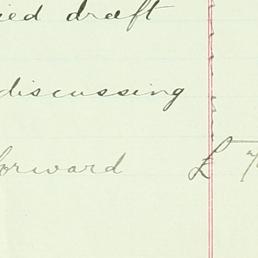 ied draft
discussing
forward £